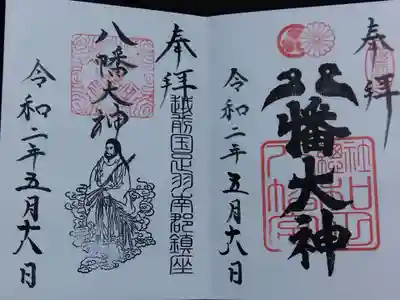 奉拝
八幡大神
令和二年五月十六日
奉拝
越前国足羽南郡鎮座
八幡大神
令和二年五月十六日